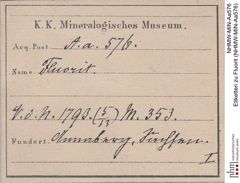 K. K. Mineralogisches Museum.
Acq. Post A. a. 576.
Name Fluorit.
V. d. N. 1793. (5/13) M. 353.
Fundort Annaberg, Sachsen
I
NHMW-MIN-Aa576
Etiketten zu Fluorit (NHMW-MIN-Aa576)
nhm